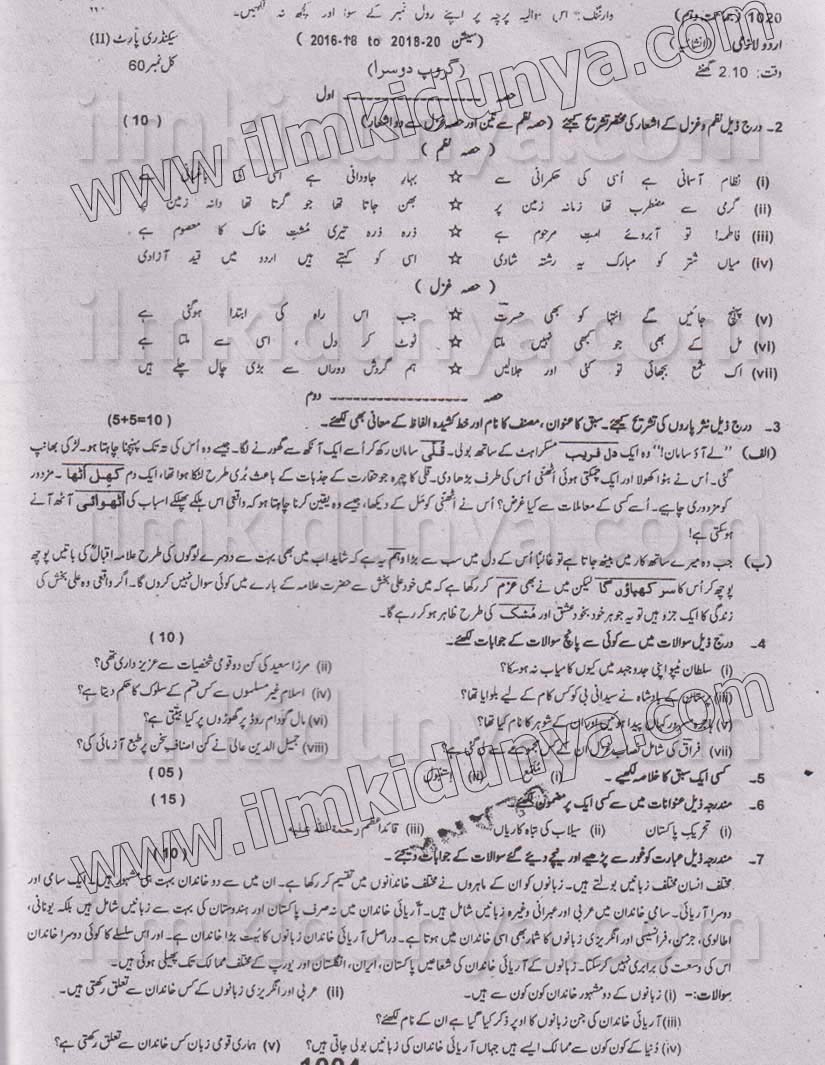 1020 (جماعت دہم) وارننگ: اس سوالیہ پرچہ پر اپنے رول نمبر کے سوا اور کچھ نہ لکھیں۔
اردو لازمی (انشائیہ) (سیشن 2016-18 to 2018-20) سیکنڈری پارٹ (II)
وقت: 2.10 گھنٹے (گروپ دوسرا) کل نمبر 60
حصہ اول
2۔ درج ذیل نظم و غزل کے اشعار کی مختصر تشریح کیجئے (حصہ نظم سے تین اور حصہ غزل سے دو اشعار) (10)
(حصہ نظم)
(i) نظام آسمانی ہے اُسی کی حکمرانی سے ☆ بہار جاودانی ہے اسی کی باغبانی سے
(ii) گرمی سے مضطرب تھا زمانہ زمین پر ☆ بھن جاتا تھا جو گرتا تھا دانہ زمین پر
(iii) فاطمہ! تو آبروئے امت مرحوم ہے ☆ ذرہ ذرہ تیری مُشتِ خاک کا معصوم ہے
(iv) میاں شتر کو مبارک یہ رشتہ شادی ☆ اسی کو کہتے ہیں اردو میں قید آزادی
(حصہ غزل)
(v) پہنچ جائیں گے انتہا کو بھی حسرت ☆ جب اس راہ کی ابتدا ہوگئی ہے
(vi) مل کے بھی جو کبھی نہیں ملتا ☆ ٹوٹ کر دل، اسی سے ملتا ہے
(vii) اک شمع بجھائی تو کئی اور جلالیں ☆ ہم گردشِ دوراں سے بڑی چال چلے ہیں
حصہ دوم
3۔ درج ذیل نثر پاروں کی تشریح کیجئے۔ سبق کا عنوان، مصنف کا نام اور خط کشیدہ الفاظ کے معانی بھی لکھئے۔ (5+5=10)
(الف) "لے آؤ سامان!" وہ ایک دل فریب مسکراہٹ کے ساتھ بولی۔ قلی سامان رکھ کر اُسے ایک آنکھ سے گھورنے لگا۔ جیسے وہ اُس کی تہ تک پہنچنا چاہتا ہو۔ لڑکی بھانپ
گئی۔ اُس نے بٹوا کھولا اور ایک چمکتی ہوئی اٹھنی اُس کی طرف بڑھا دی۔ قلی کا چہرہ جو حقارت کے جذبات کے باعث بُری طرح لٹکا ہوا تھا، ایک دم کھل اٹھا۔ مزدور
کو مزدوری چاہیے۔ اُسے کسی کے معاملات سے کیا غرض؟ اُس نے اٹھنی کو مَل کے دیکھا، جیسے وہ یقین کرنا چاہتا ہو کہ واقعی اس ہلکے پھلکے اسباب کی اٹھوائی آٹھ آنے
ہوسکتی ہے!
(ب) جب وہ میرے ساتھ کار میں بیٹھ جاتا ہے تو غالباً اُس کے دل میں سب سے بڑا وہم یہ ہے کہ شاید اب میں بھی بہت سے دوسرے لوگوں کی طرح علامہ اقبالؒ کی باتیں پوچھ
پوچھ کر اُس کا سر کھپاؤں گا لیکن میں نے بھی عزم کر رکھا ہے کہ میں خود علی بخش سے حضرت علامہ کے بارے میں کوئی سوال نہیں کروں گا۔ اگر واقعی وہ علی بخش کی
زندگی کا ایک جزو ہیں تو یہ جوہر خود بخود عشق اور مُشک کی طرح ظاہر ہو کر رہے گا۔
4۔ درج ذیل سوالات میں سے کوئی سے پانچ سوالات کے جوابات لکھئے۔ (10)
(i) سلطان ٹیپو اپنی جدوجہد میں کیوں کامیاب نہ ہوسکا؟ (ii) مرزا سعید کی کن دو قومی شخصیات سے عزیز داری تھی؟
(iii) پرستان کے بادشاہ نے سیدانی بی کو کس کام کے لیے بلوایا تھا؟ (iv) اسلام غیر مسلموں سے کس قسم کے سلوک کا حکم دیتا ہے؟
(v) کہاں پیدا ہوئیں اور ان کے شوہر کا نام کیا تھا؟ (vi) مال گودام روڈ پر گھوڑوں پر کیا بیتی ہے؟
(vii) فراق کی شامل نصاب غزل ان کے کس مجموعے سے لی گئی ہے؟ (viii) جمیل الدین عالی نے کن اصنافِ سخن پر طبع آزمائی کی؟
5۔ کسی ایک سبق کا خلاصہ لکھیے۔ (i) (ii) استنبول (05)
6۔ مندرجہ ذیل عنوانات میں سے کسی ایک پر مضمون لکھئے۔ (15)
(i) تحریک پاکستان (ii) سیلاب کی تباہ کاریاں (iii) قائداعظم رحمۃ اللہ علیہ
7۔ مندرجہ ذیل عبارت کو غور سے پڑھیے اور نیچے دیے گئے سوالات کے جوابات دیجئے۔ (10)
مختلف انسان مختلف زبانیں بولتے ہیں۔ زبانوں کو ان کے ماہروں نے مختلف خاندانوں میں تقسیم کر رکھا ہے۔ ان میں سے دو خاندان بہت ہی مشہور ہیں۔ ایک سامی اور
دوسرا آریائی۔ سامی خاندان میں عربی اور عبرانی وغیرہ زبانیں شامل ہیں۔ آریائی خاندان میں نہ صرف پاکستان اور ہندوستان کی بہت سے زبانیں شامل ہیں بلکہ یونانی،
اطالوی، جرمن، فرانسیسی اور انگریزی زبانوں کا شمار بھی اسی خاندان میں ہوتا ہے۔ دراصل آریائی خاندان زبانوں کا بہت بڑا خاندان ہے۔ اور اس سلسلے کا کوئی دوسرا خاندان
اس کی وسعت کی برابری نہیں کرسکتا۔ زبانوں کے آریائی خاندان کی شعاعیں پاکستان، ایران، انگلستان اور یورپ کے مختلف ممالک تک پھیلی ہوئی ہیں۔
سوالات:۔ (i) زبانوں کے دو مشہور خاندان کون کون سے ہیں۔ (ii) عربی اور انگریزی زبانوں کے کس خاندان سے تعلق رکھتی ہیں۔
(iii) آریائی خاندان کی جن زبانوں کا اوپر ذکر کیا گیا ہے ان کے نام لکھئے؟
(iv) دُنیا کے کون کون سے ممالک ایسے ہیں جہاں آریائی خاندان کی زبانیں بولی جاتی ہیں؟ (v) ہماری قومی زبان کس خاندان سے تعلق رکھتی ہے؟
www.ilmkidunya.com
www.ilmkidunya.com
ilmkidunya.com
ilmkidunya.com
ilmkidunya.com
ilmkidunya.com
ilmkidunya.com